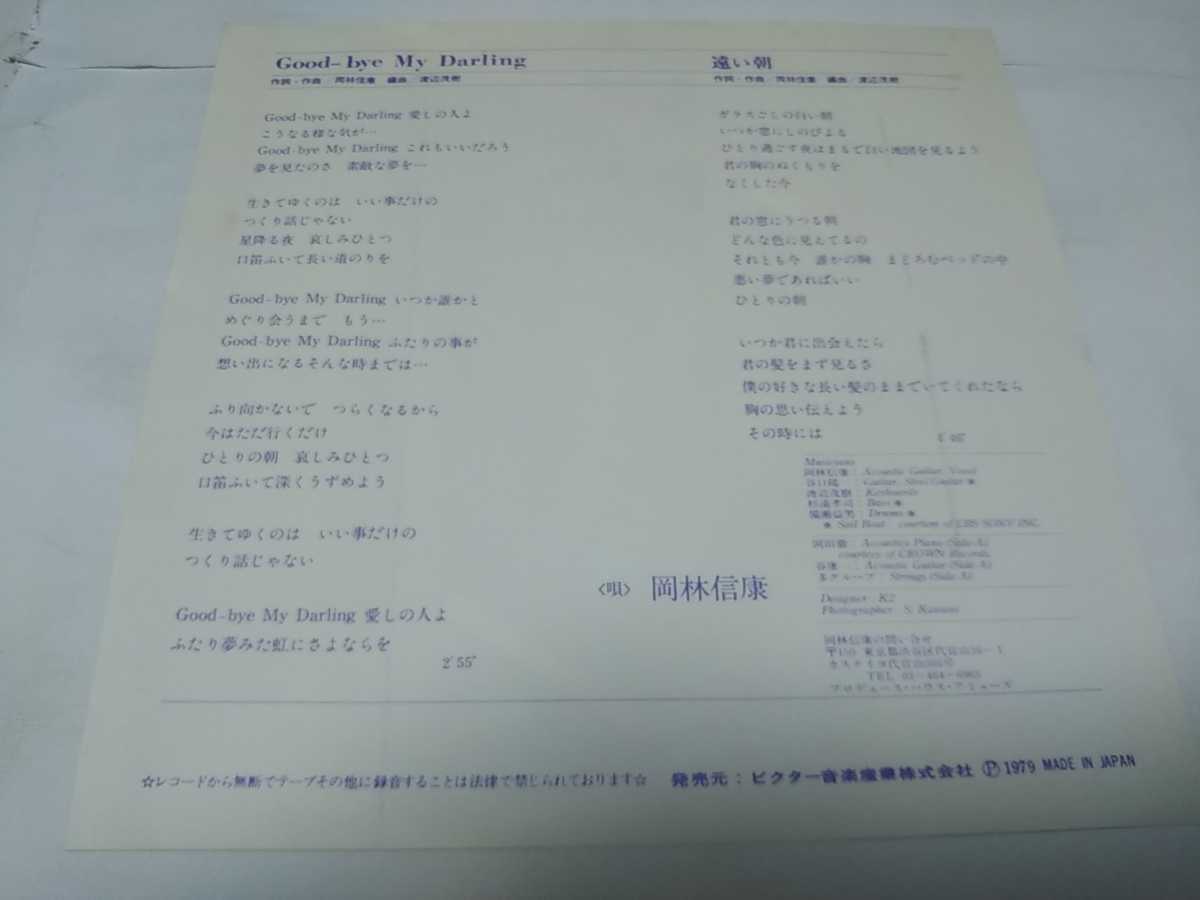 Good-bye My Darling
作詞・作曲/岡林信康 編曲/渡辺茂樹
Good-bye My Darling 愛しの人よ
こうなる様な気が…
Good-bye My Darling これもいいだろう
夢を見たのさ 素敵な夢を…
生きてゆくのは いい事だけの
つくり話じゃない
星降る夜 哀しみひとつ
口笛ふいて長い道のりを
Good-bye My Darling いつか誰かと
めぐり会うまで もう…
Good-bye My Darling ふたりの事が
想い出になるそんな時までは…
ふり向かないで つらくなるから
今はただ行くだけ
ひとりの朝 哀しみひとつ
口笛ふいて深くうずめよう
生きてゆくのは いい事だけの
つくり話じゃない
Good-bye My Darling 愛しの人よ
ふたり夢みた虹にさよならを
2′55″
遠い朝
作詞・作曲/岡林信康 編曲/渡辺茂樹
ガラスごしの白い朝
いつか窓にしのびよる
ひとり過ごす夜はまるで白い地図を見るよう
君の胸のぬくもりを
なくした今
君の窓にうつる朝
どんな色に見えてるの
それとも今 誰かの胸 まどろむベッドの中
悪い夢であればいい
ひとりの朝
いつか君に出会えたら
君の髪をまず見るさ
僕の好きな長い髪のままでいてくれたなら
胸の思い伝えよう
その時には
Musicians
岡林信康:Acoustic Guitar, Vocal
: Guitar, Steel Guitar ※
渡辺茂樹:Keyboards
: Bass ※
: Drums ※
※ Sail Boat: courtesy of CBS SONY INC.
: Acoustics Piano (Side-A)
courtesy of CROWN Records.
: Acoustic Guitar (Side-A)
グループ : Strings (Side-A)
Designer : K2
Photographer : S.
〈唄〉 岡林信康
岡林信康の問い合せ
〒150 東京都渋谷区代官山
TEL 03-464-
プロデュース・ハウス・アミューズ
☆レコードから無断でテープその他に録音することは法律で禁じられております☆ 発売元:ビクター音楽産業株式会社 Ⓟ1979 MADE IN JAPAN